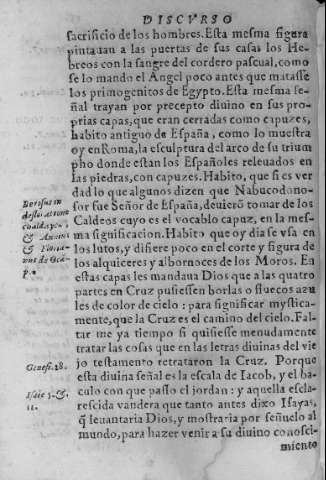 DISCVRSO
sacrificio de los hombres. Esta mesma figura
pintauan a las puertas de sus casas los He-
breos con la sangre del cordero pascual, como
se lo mando el Angel poco antes que matasse
los primogenitos de Egypto. Esta mesma se-
ñal trayan por precepto diuino en sus pro-
prias capas, que eran cerradas como capuzes,
habito antiguo de España, como lo muestra
oy en Roma, la esculptura del arco de su trium
pho donde estan los Españoles releuados en
las piedras, con capuzes. Habito, que si es ver
dad lo que algunos dizen que Nabucodono-
sor fue Señor de España, deuierō tomar de los
Caldeos cuyo es el vocablo capuz, en la mes-
ma significacion. Habito que oy dia se vsa en
los lutos, y difiere poco en el corte y figura de
los alquiceres y albornoces de los Moros. En
estas capas les mandaua Dios que a las quatro
partes en Cruz pusiessen borlas o fluecos azu
les de color de cielo: para significar mystica-
mente, que la Cruz es el camino del cielo. Fal-
tar me ya tiempo si quisiesse menudamente
tratar las cosas que en las letras diuinas del vie
jo testamento retrataron la Cruz. Porque
esta diuina señal es la escala de Iacob, y el ba-
culo con que passo el jordan: y aquella escla-
rescida vandera que tanto antes dixo Isayas,
q̃ leuantaria Dios, y mostraria por señuelo al
mundo, para hazer venir a su diuino conosci-
miento
Berosus in
Genes. 28.
Isaie 5. &
11.